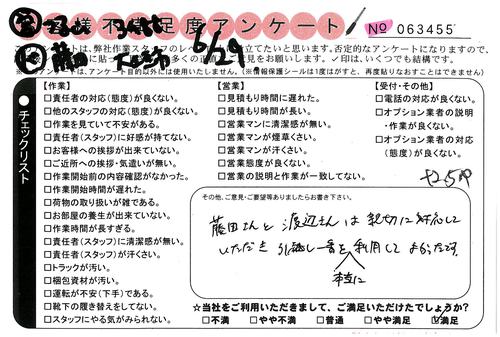 様不満足度アンケート
No 063455
6/29
藤田
このアンケートは、弊社作業スタッフのレベル
立てたいと思います。否定的なアンケートになりますので、
ご意見をお願いします。✓印は、いくつでも結構です。
アンケート目的以外には使用いたしません。(※情報保護シールは1度はがすと、再度貼りなおすことはできません)
チェックリスト
【作業】
□責任者の対応(態度)が良くない。
□他のスタッフの対応(態度)が良くない。
□作業を見ていて安心がある。
□責任者(スタッフ)に好感が持てない。
□お客様への挨拶が出来ていない。
□ご近所への挨拶・気遣いが無い。
□作業開始前の内容確認がなかった。
□作業開始時間が遅れた。
□荷物の取り扱いが雑である。
□お部屋の養生が出来ていない。
□作業時間が長すぎる。
□責任者(スタッフ)に清潔感が無い。
□責任者(スタッフ)が汗くさい。
□トラックが汚い。
□梱包資材が汚い。
□運転が不安(下手)である。
□靴下の履き替えをしてない。
□スタッフにやる気がみられない。
【営業】
□見積もり時間に遅れた。
□見積もり時間が長い。
□営業マンに清潔感が無い。
□営業マンが煙草くさい。
□営業マンが汗くさい。
□営業態度が良くない。
□営業の説明と作業が一致してない。
【受付・その他】
□電話の対応が良くない。
□オプション業者の説明
・作業が良くない。
□オプション業者の対応
(態度)が良くない。
その他、ご意見・ご要望等ありましたらお書き下さい。
藤田さんと渡辺さんは親切に対応して
いただき 引越し一番を利用して よかったです。
本当に
☆当社をご利用いただきまして、ご満足いただけたでしょうか?
□不満 □やや不満 □普通 □やや満足 ☑満足